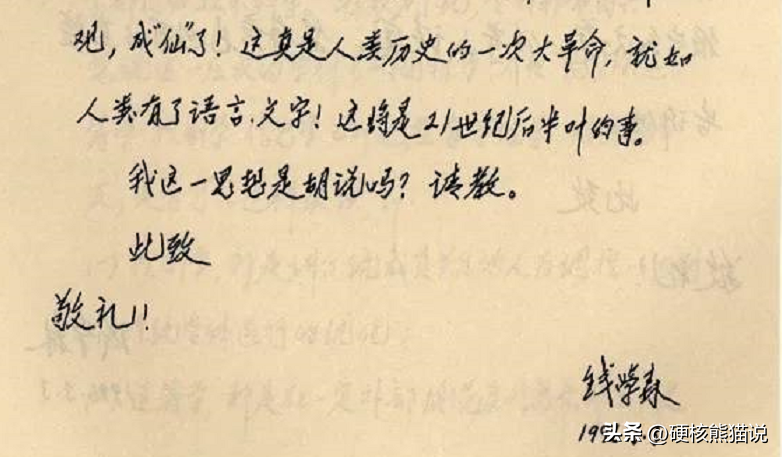 观，成“仙”了！这真是人类历史的一次大革命，就如
人类有了语言、文字！这将是21世纪后半叶的事。
我这一思想是胡说吗？请教。
此致
敬礼！
钱学森
19
头条 @硬核熊猫说